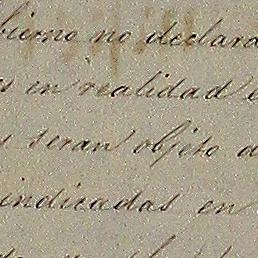 bierno no declara
s en realidad e
y seran objeto d
indicadas en